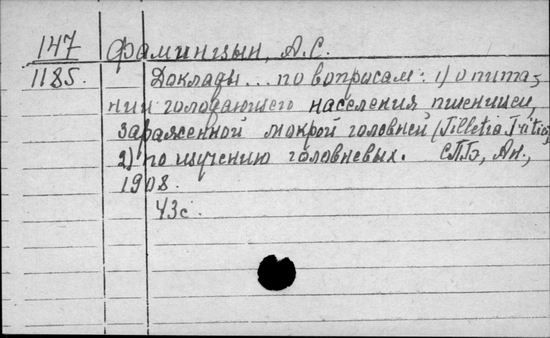 147 Фаминцын, А.С.
1185. Доклады... по вопросам: 1) о пита-
нии голодающего населения пшеницей,
зараженной мокрой головней (Tilletia Tritici),
2) по изучению головневых. СПБ, Ан.,
1908.
43с.